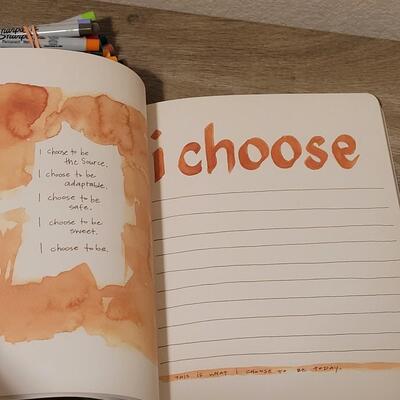 Sharpie
I choose to be
the Source.
I choose to be
adaptable.
I choose to be
safe.
I choose to be
sweet.
I choose to be.
i choose
THIS IS WHAT I CHOOSE TO BE TODAY.